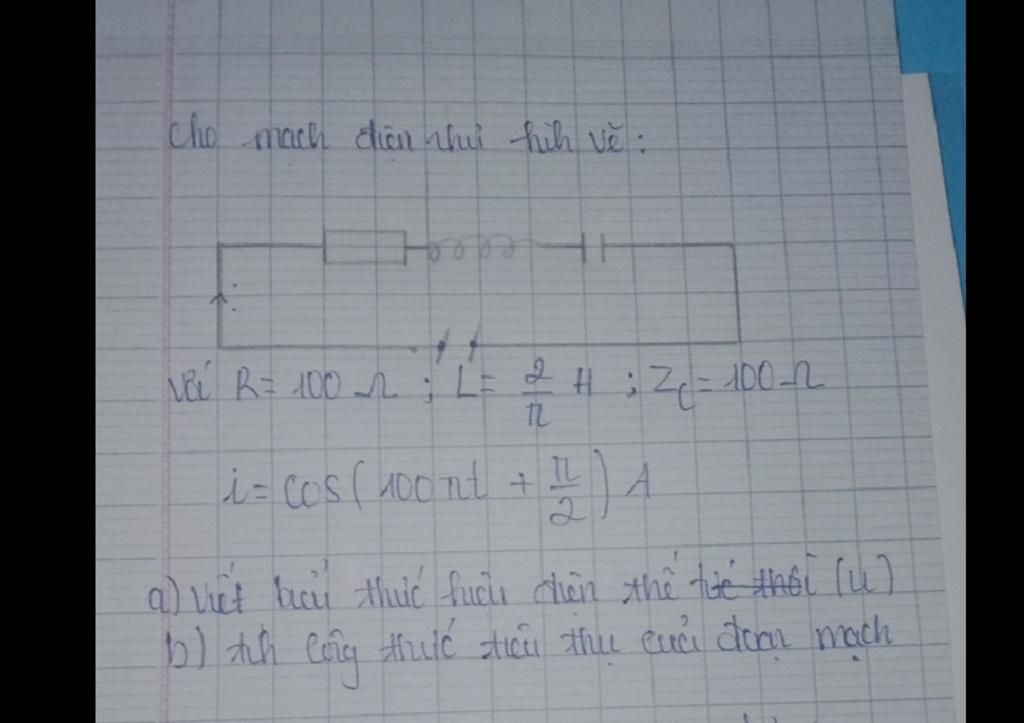 Cho mạch điện như hình vẽ:
i
Với R = 100 Ω ; L = 2/π H ; Z_C = 100 Ω
i = cos(100πt + π/2) A
a) Viết biểu thức hiệu điện thế tức thời (u)
b) tính công thức tiêu thụ của đoạn mạch